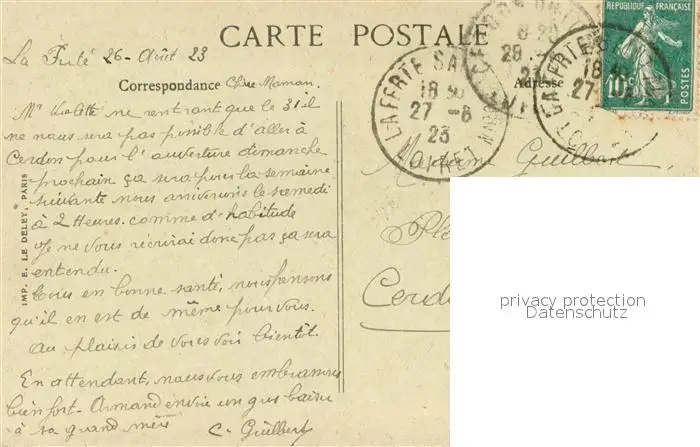 CARTE POSTALE
La Ferté 26 - Août 23
Correspondance Chère Maman.
Adresse
Mr Violette ne rentrant que le 31 il
ne nous sera pas possible d'aller à
Cerdon pour l'ouverture dimanche
prochain ça sera pour la semaine
suivante nous arriverons le samedi
à 2 Heures. comme d'habitude
Je ne vous récrirai donc pas ça sera
entendu.
Tous en bonne santé, nous pensons
qu'il en est de même pour vous.
au plaisir de vous voir bientôt.
En attendant, nous vous embrassons
bien fort. Armand envoie un gros baiser
à sa grand mère
C. Guilbert
IMP. E. LE DELEY, PARIS
REPUBLIQUE FRANÇAISE
10c
LA FERTE SA
18
27 - 8
23
LOIRET
LA FERTE
18
27
Madame Guilbert
Cerdo
privacy protection
Datenschutz